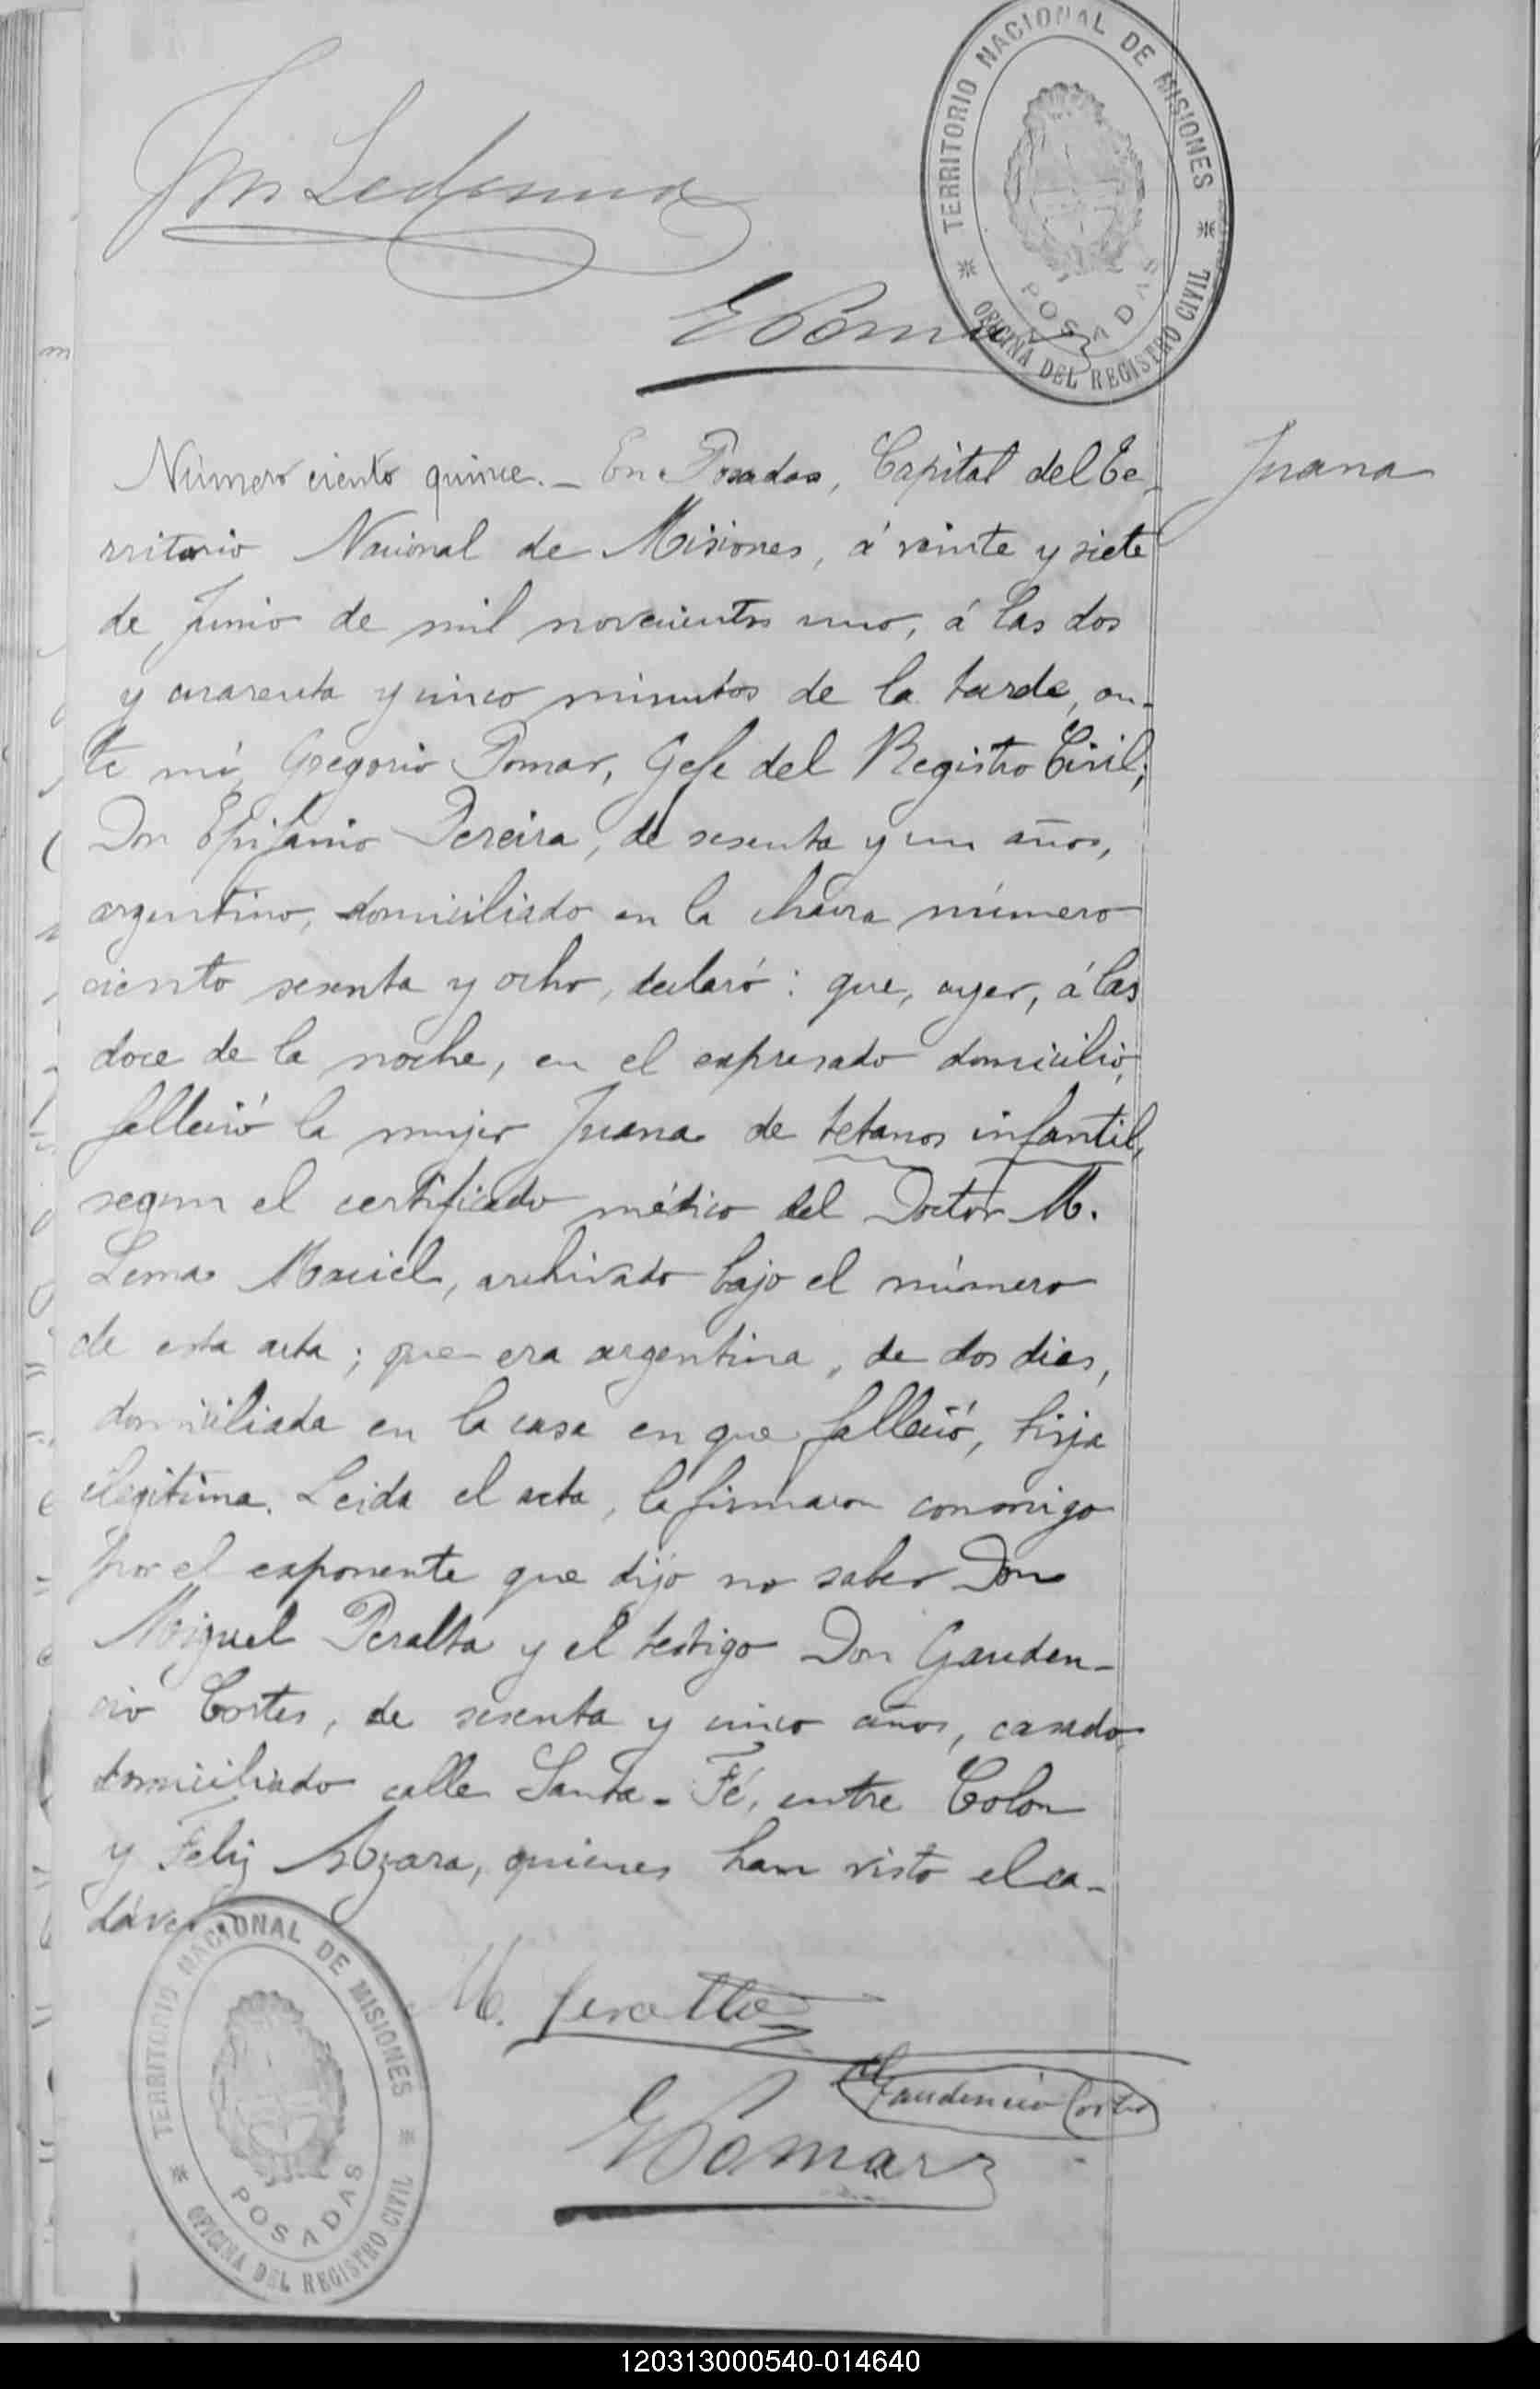 Ledesma
TERRITORIO NACIONAL DE MISIONES
POSADAS
OFICINA DEL REGISTRO CIVIL
GPomar
Juana
Número ciento quince._ En Posadas, Capital del Te-
rritorio Nacional de Misiones, á veinte y siete
de Junio de mil novecientos uno, á las dos
y cuarenta y cinco minutos de la tarde, an-
te mí, Gregorio Pomar, Gefe del Registro Civil;
Don Epifanio Pereira, de sesenta y un años,
argentino, domiciliado en la chacra número
ciento sesenta y ocho, declaró: que, ayer, á las
doce de la noche, en el expresado domicilio,
falleció la mujer Juana de tetanos infantil,
segun el certificado médico del Doctor M.
Lema Maciel, archivado bajo el número
de esta acta; que era argentina, de dos dias,
domiciliada en la casa en que falleció, hija
ilegitima. Leida el acta, la firmaron conmigo
por el exponente que dijo no saber Don
Miguel Peralta y el testigo Don Gauden-
cio Cortes, de sesenta y cinco años, casado,
domiciliado calle Santa-Fé, entre Colon
y Feliz Azara, quienes han visto el ca-
dáver.
M. Peralta
Gaudencio Cortes
GPomar
TERRITORIO NACIONAL DE MISIONES
POSADAS
OFICINA DEL REGISTRO CIVIL
120313000540-014640